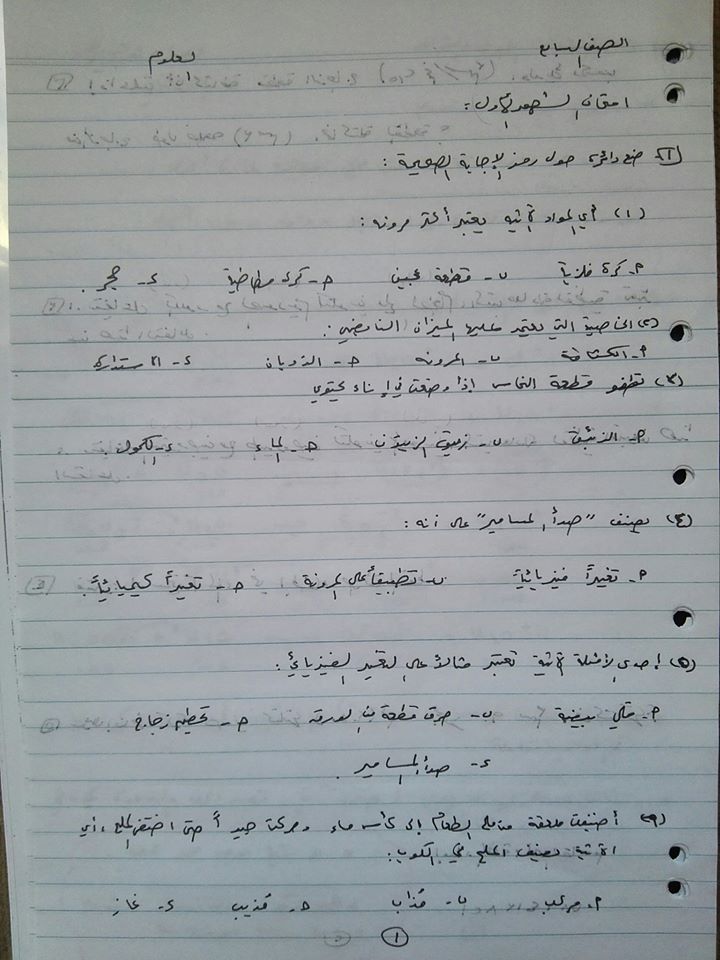 الصف السابع العلوم
امتحان الشهر الأول:
ضع دائرة حول رمز الإجابة الصحيحة:
(١) أي المواد الآتية يعتبر أكثر مرونة:
أ- كرة فلزية ب- قطعة عجين ج- كرة مطاطية د- حجر.
(٢) الخاصية التي يعتمد عليها الميزان النابضي:
أ- الكثافة ب- المرونه ج- الذوبان د- الاستداره
(٣) تطفو قطعة النحاس إذا وضعت في إناء يحتوي
أ- الزئبق ب- زيت الزيتون ج- الماء د- الكحول.
(٤) يصنف "صدأ المسامير" على أنه:
أ- تغيراً فيزيائياً ب- تطبيقاً على المرونة ج- تغيراً كيميائياً.
(٥) إحدى الأمثلة الآتية تعتبر مثالاً على التغير الفيزيائي:
أ- قلي بيضة ب- حرق قطعة من الورق ج- تحطيم زجاج
د- صدأ المسامير.
(٦) أضيفت ملعقة من ملح الطعام إلى كأس ماء وحركت جيداً حتى اختفى الملح، أي
الآتية يصنف الملح في الكوب:
أ- مركب ب- مُذاب ج- مُذيب د- غاز
١